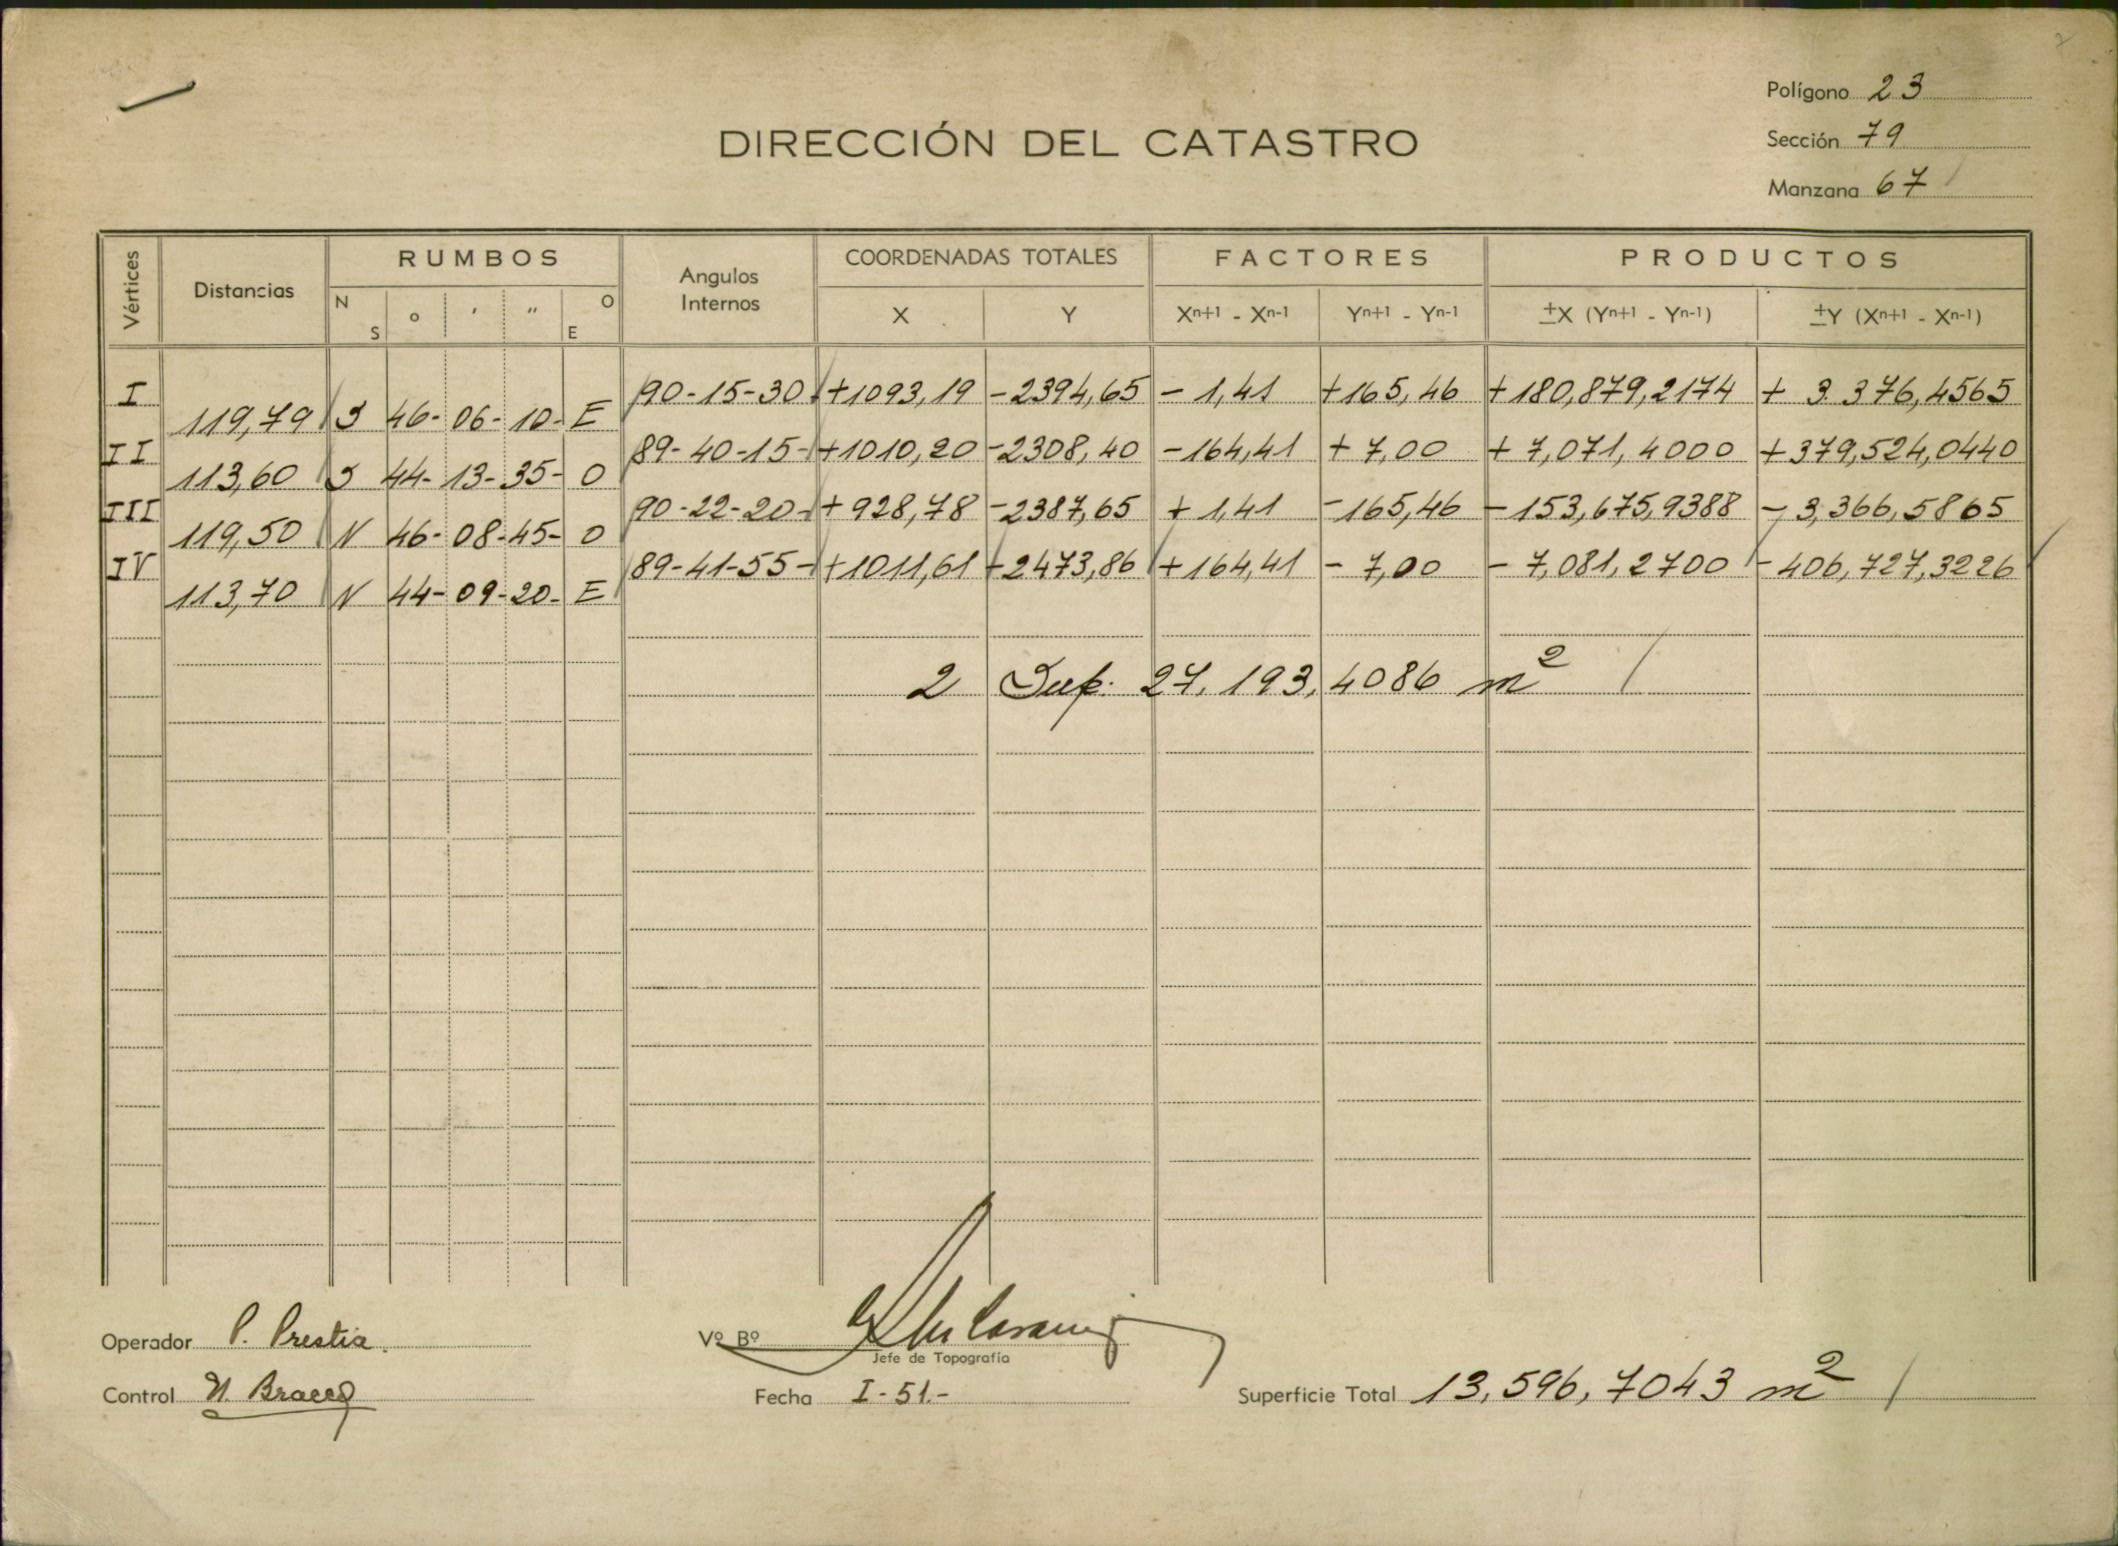 Polígono 23
DIRECCIÓN DEL CATASTRO
Sección 79
Manzana 67
Vértices Distancias RUMBOS Angulos Internos COORDENADAS TOTALES FACTORES PRODUCTOS
N S o ' " O E X Y Xn+1 - Xn-1 Yn+1 - Yn-1 ±X (Yn+1 - Yn-1) ±Y (Xn+1 - Xn-1)
I 90-15-30 +1093,19 -2394,65 - 1,41 +165,46 +180,879,2174 + 3.376,4565
119,79 S 46- 06- 10- E
II 89-40-15- +1010,20 -2308,40 -164,41 + 7,00 + 7,071,4000 +379,524,0440
113,60 S 44- 13- 35- O
III 90-22-20- + 928,78 -2387,65 + 1,41 -165,46 -153,675,9388 - 3,366,5865
119,50 N 46- 08-45- O
IV 89-41-55- +1011,61 -2473,86 +164,41 - 7,00 - 7,081,2700 -406,727,3226
113,70 N 44- 09-20- E
2 Sup. 27.193,4086 m²
Operador P. Prestia.
Vº Bº
Jefe de Topografía
Control N. Bracco
Fecha I-51.-
Superficie Total 13,596,7043 m²